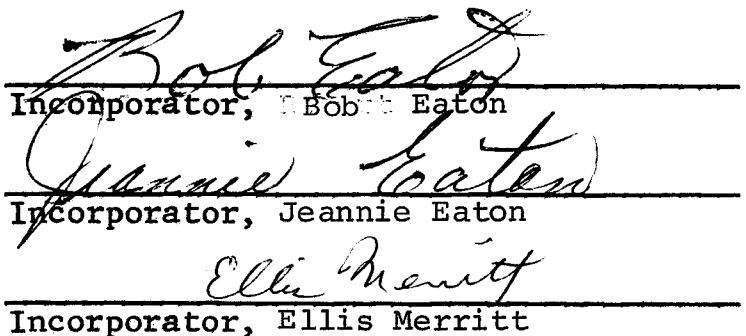 Bob Eaton
Incorporator, Bob Eaton
Jeannie Eaton
Incorporator, Jeannie Eaton
Ellis Merritt
Incorporator, Ellis Merritt